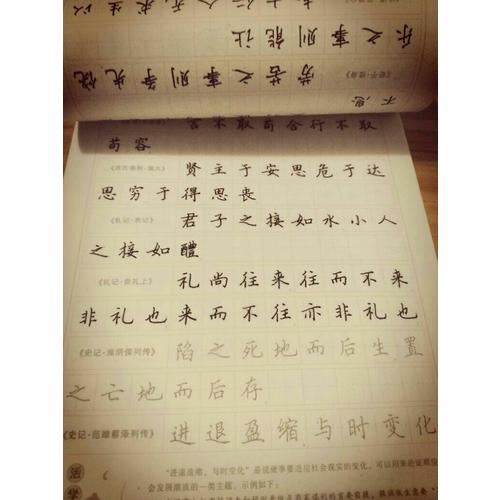 《荀子·修身》 劳苦之事则争先饶
乐之事则能让
言不取苟合行不取
苟容
《吕氏春秋·慎大》 贤主于安思危于达
思穷于得思丧
《礼记·表记》 君子之接如水小人
之接如醴
《礼记·曲礼上》 礼尚往来往而不来
非礼也来而不往亦非礼也
《史记·淮阴侯列传》 陷之死地而后生置
之亡地而后存
《史记·范雎蔡泽列传》 进退盈缩与时变化
“进退盈缩，与时变化”是说做事要适应社会现实的变化，可以用来论证顺应
会发展潮流的一类主题。示例如下：